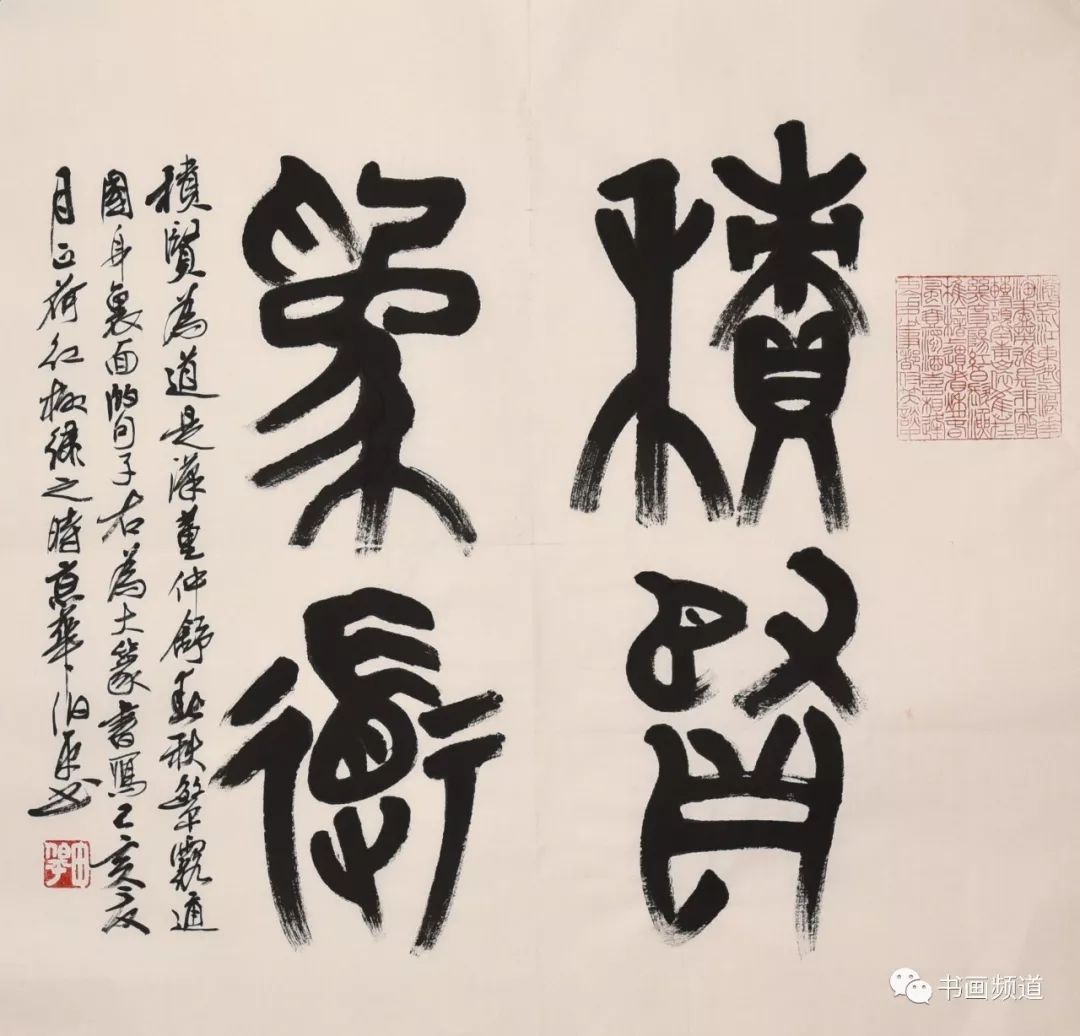 積賢
為道
積賢為道是漢董仲舒春秋繁露通
國身裏面的句子右為大篆書寫己亥夏
月正荷紅柳綠之時京華伯平書
书画频道